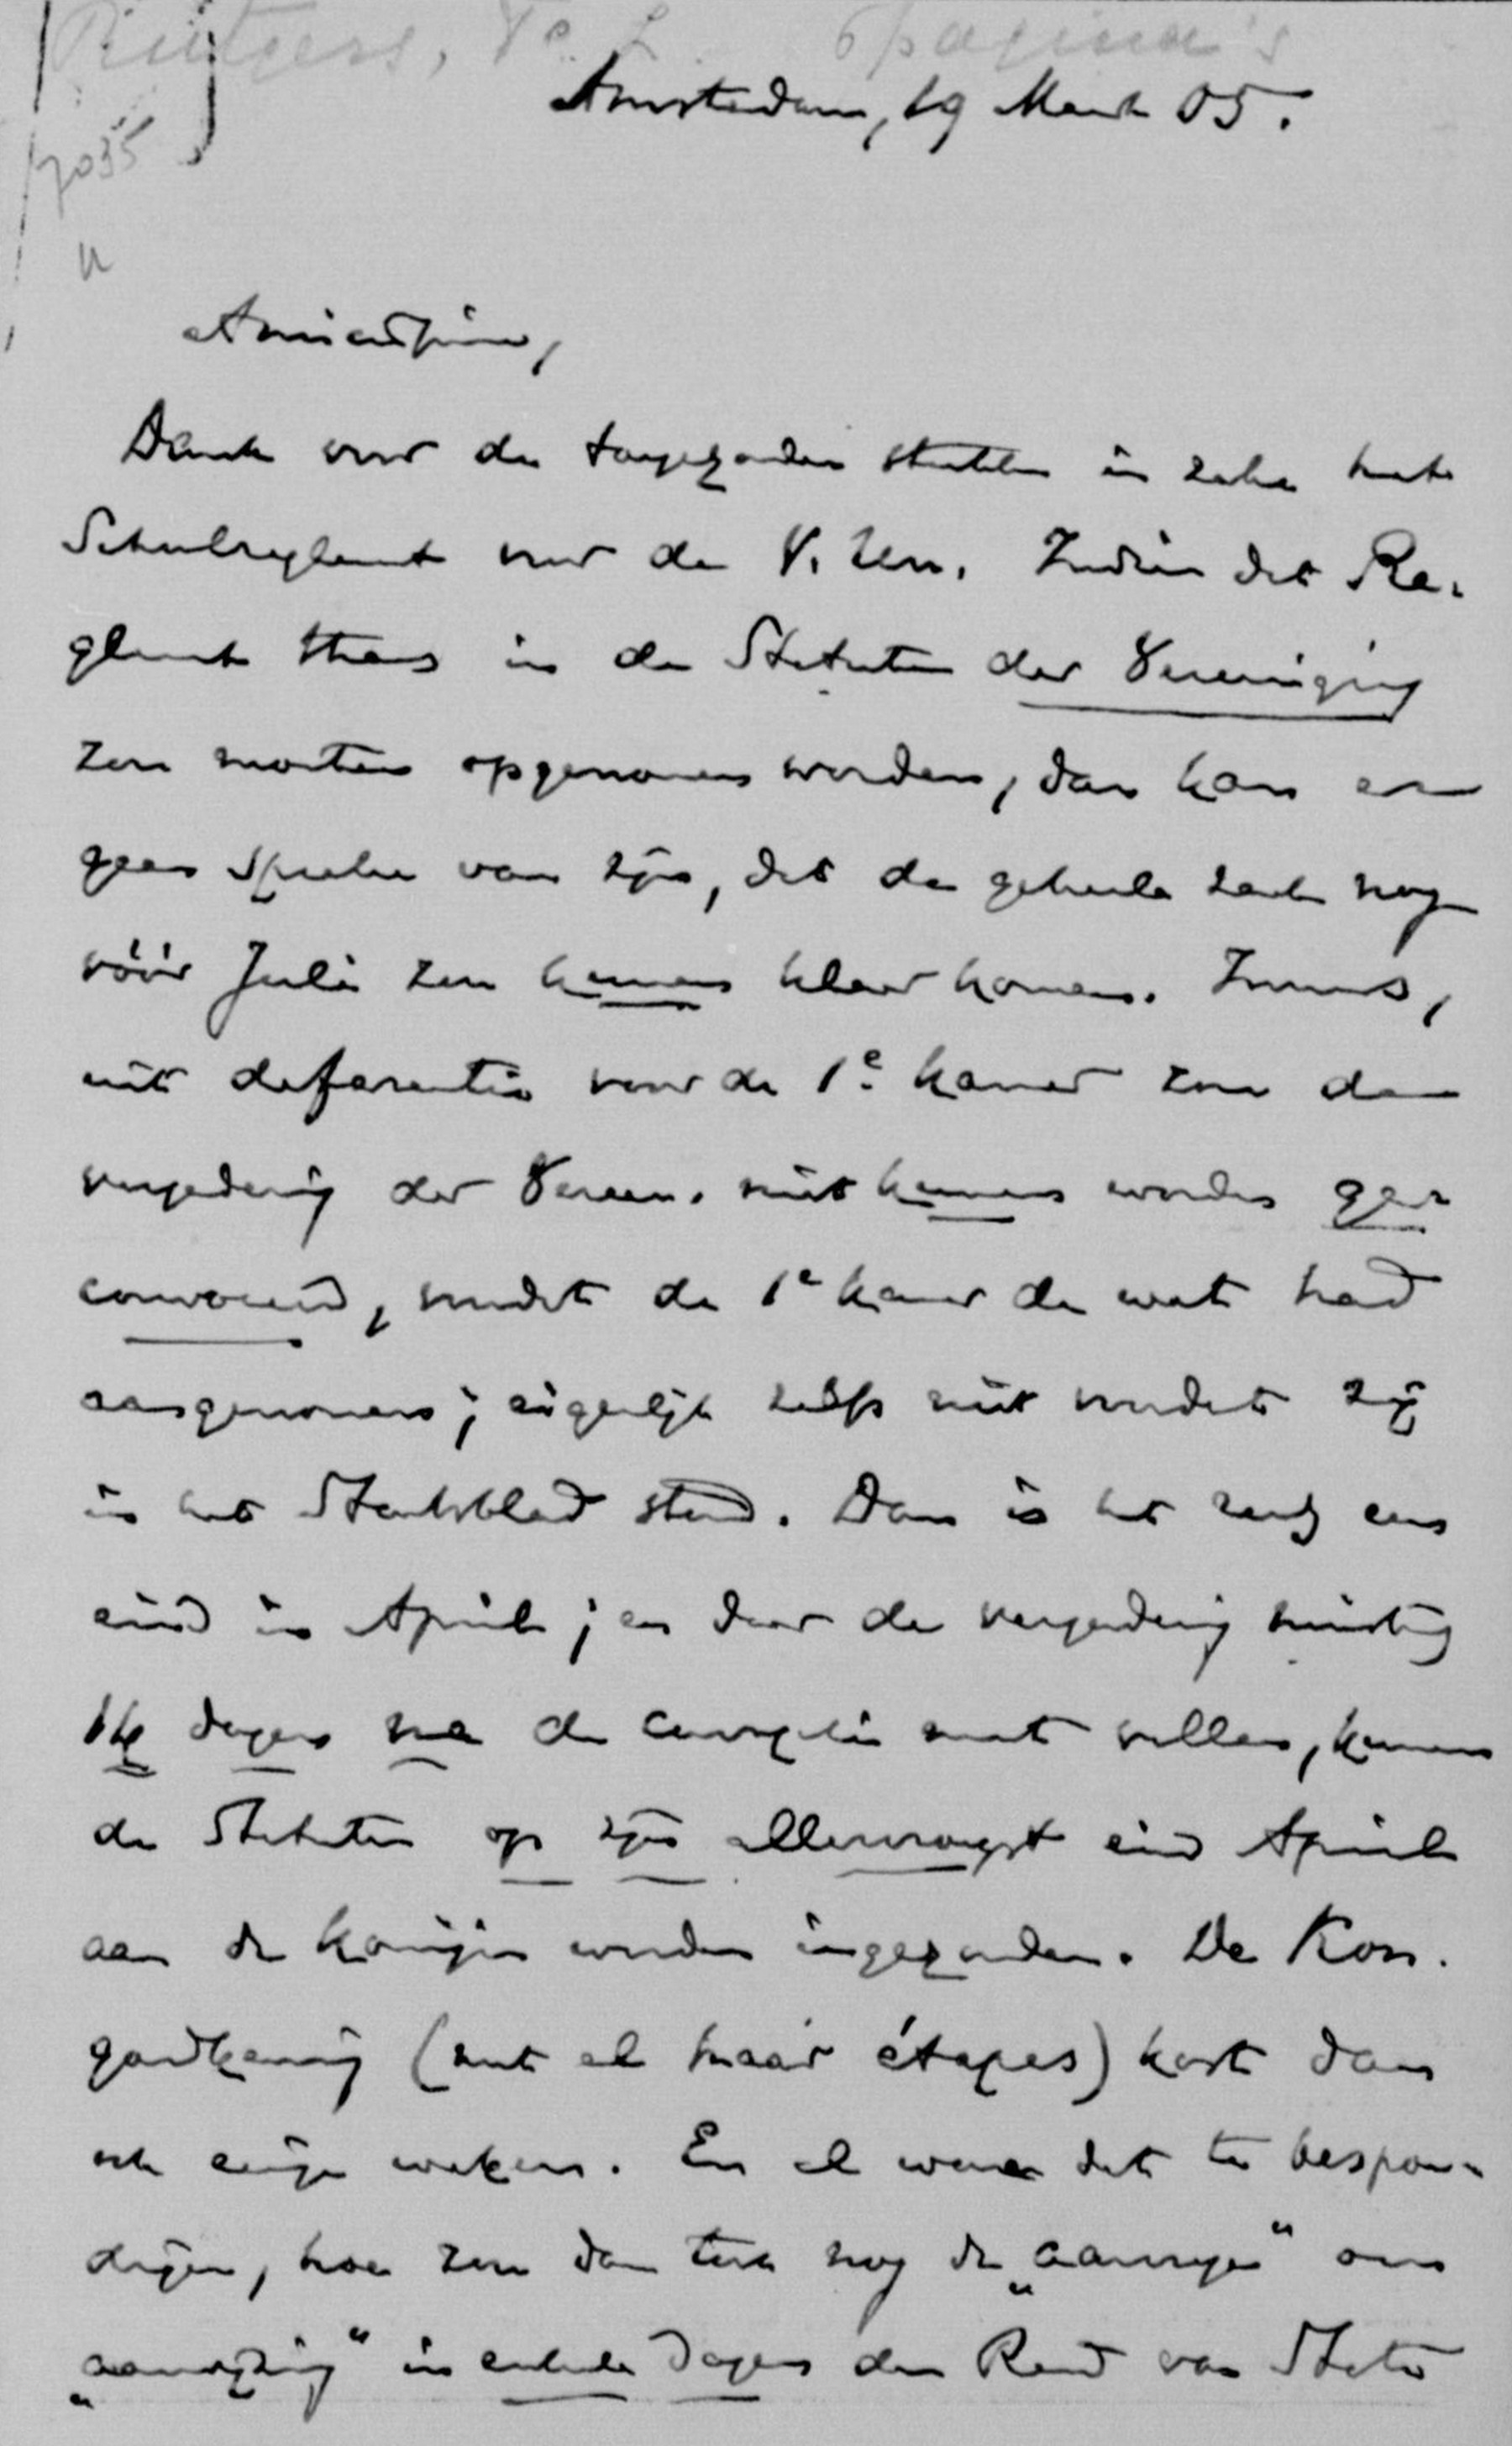 Rutgers, F. L. 6 pagina's
Amsterdam, 19 Maart 05.
7035
Amicissime,
Dank voor de toegezonden stukken in zake het
Schoolreglement voor de V. Un. Indien dat Re-
glement thans in de Statuten der Vereeniging
zou moeten opgenomen worden, dan kan er
geen sprake van zijn, dat de geheele zaak nog
vóór Juli zou kunnen klaar komen. Immers,
uit deferentie voor de 1e kamer zou de
vergadering der Vereen. niet kunnen worden ge-
convoceerd, voordat de 1e kamer de wet had
aangenomen; eigenlijk zelfs niet voordat zij
in het Staatsblad stond. Dan is het reeds een
eind in April; en daar de vergadering minstens
14 dagen na de convocatie moet vallen, kunnen
de Statuten op zijn allervroegst eind April
aan de Koningin worden ingezonden. De Kon.
goedkeuring (met al haar étapes) kost dan
ook eenige weken. En al ware dat te bespoe-
digen, hoe zou dan toch nog de „aanvrage" om
„aanwijzing" in enkele dagen den Raad van State